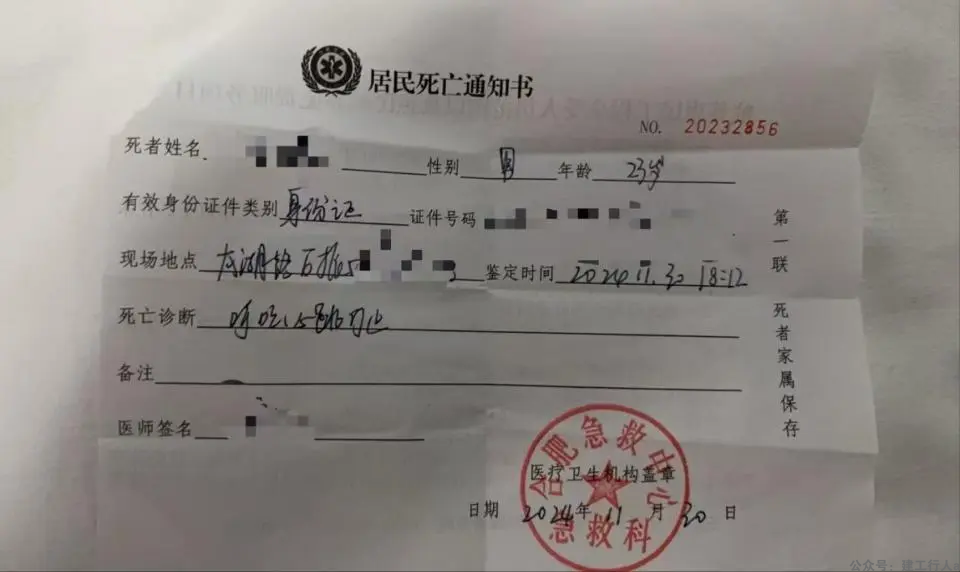 居民死亡通知书
NO. 20232856
死者姓名 性别 男 年龄 23岁
有效身份证件类别 身份证 证件号码
现场地点 鉴定时间 2024.11.30 18:12
死亡诊断 呼吸心跳停止
备注
医师签名
医疗卫生机构盖章
日期 2024年 11 月 30 日
合肥急救中心
急救科
第一联 死者家属保存
公众号：建工行人